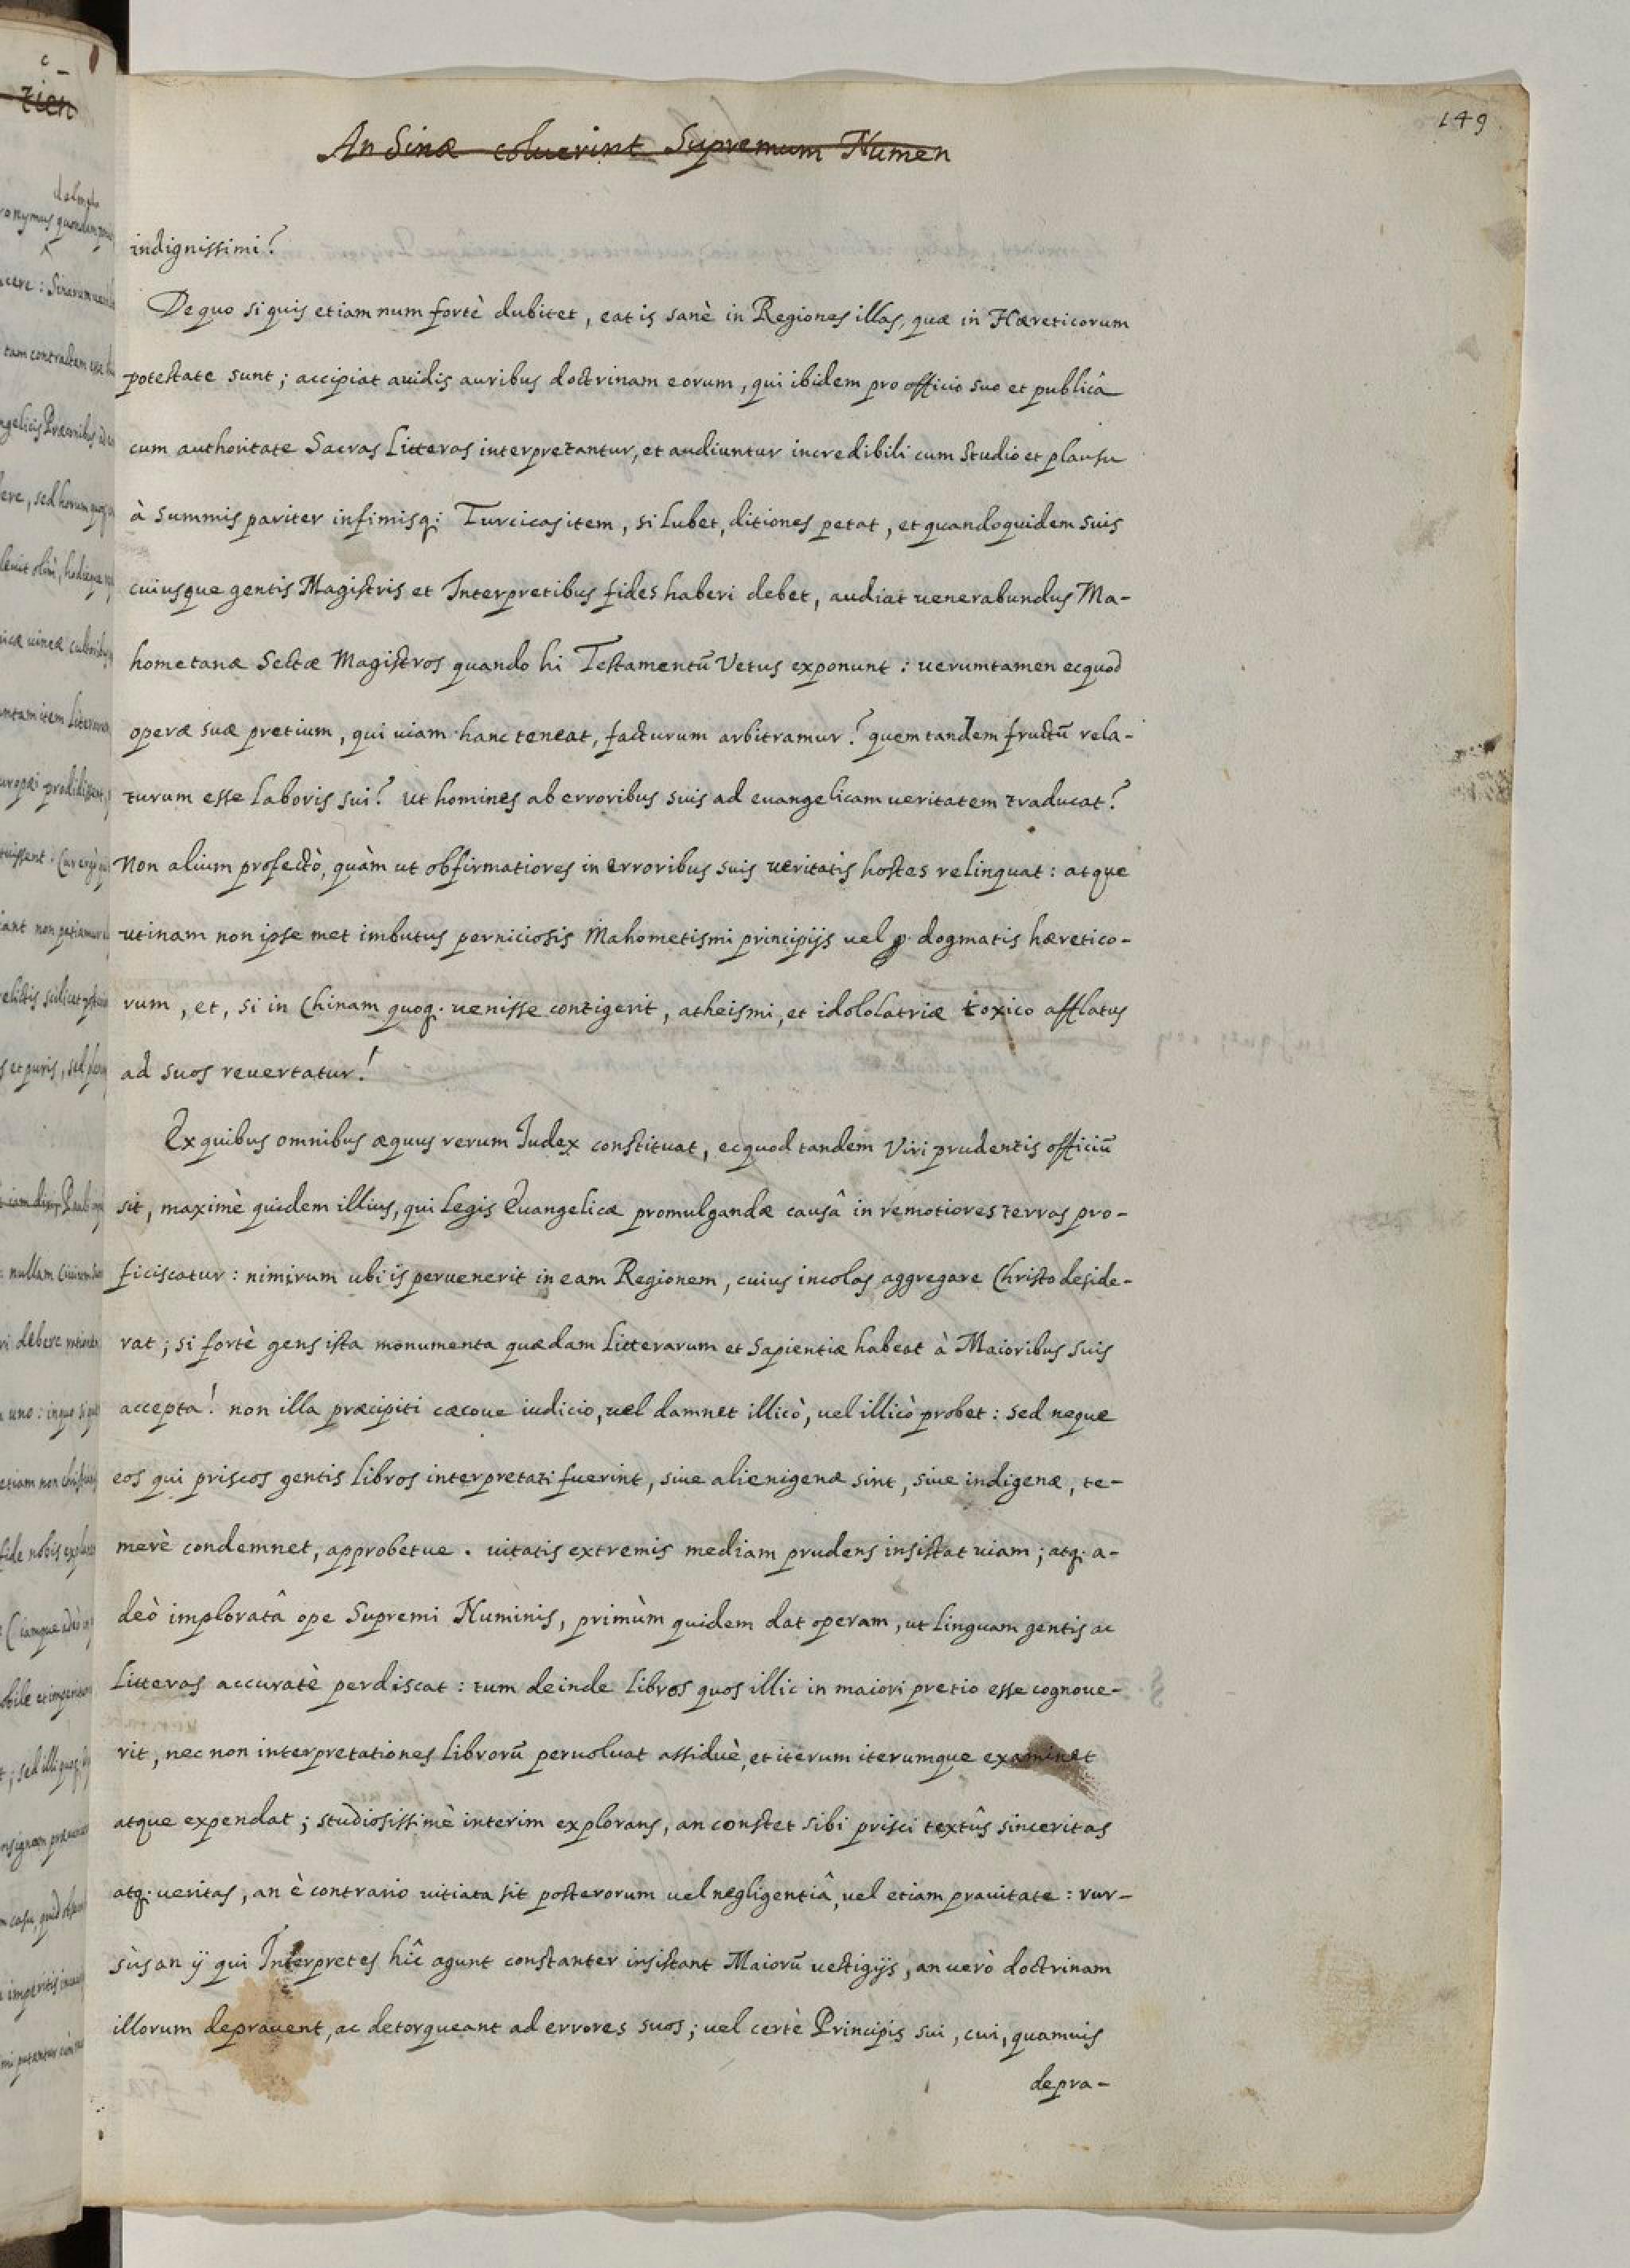 149
An Sinæ coluerint Supremum Numen
indignissimi?
De quo si quis etiam num fortè dubitet, eat is sanè in Regiones illas, quæ in Hæreticorum
potestate sunt; accipiat auidis auribus doctrinam eorum, qui ibidem pro officio suo et publicâ
cum authoritate Sacras Litteras interpretantur, et audiuntur incredibili cum studio et plausu
à summis pariter infimisq; Turcicas item, si lubet, ditiones petat, et quandoquidem suis
cuiusque gentis Magistris et Interpretibus fides haberi debet, audiat uenerabundus Ma-
hometanæ Sectæ Magistros quando hi Testamentū Vetus exponunt: uerumtamen ecquod
operæ suæ pretium, qui uiam hanc teneat, facturum arbitramur? quem tandem fructū rela-
turum esse laboris sui? ut homines ab erroribus suis ad euangelicam ueritatem traducat?
Non alium profectò, quàm ut obfirmatiores in erroribus suis ueritatis hostes relinquat: atque
utinam non ipse met imbutus perniciosis Mahometismi principijs uel dogmatis hæretico-
rum, et, si in Chinam quoq; uenisse contigerit, atheismi, et idololatriæ toxico afflatus
ad suos reuertatur!
Ex quibus omnibus æquus rerum Iudex constituat, ecquod tandem Viri prudentis officiū
sit, maximè quidem illius, qui Legis Euangelicæ promulgandæ causâ in remotiores terras pro-
ficiscatur: nimirum ubi is peruenerit in eam Regionem, cuius incolas aggregare Christo deside-
rat; si fortè gens ista monumenta quædam Litterarum et Sapientiæ habeat à Maioribus suis
accepta! non illa præcipiti cæcoue iudicio, uel damnet illicò, uel illicò probet: sed neque
eos qui priscos gentis libros interpretati fuerint, siue alienigenæ sint, siue indigenæ, te-
merè condemnet, approbetue. uitatis extremis mediam prudens insistat uiam; atq; a-
deò imploratâ ope Supremi Numinis, primùm quidem dat operam, ut linguam gentis ac
Litteras accuratè perdiscat: tum deinde libros quos illic in maiori pretio esse cognoue-
rit, nec non interpretationes librorū peruoluat assiduè, et iterum iterumque examinet
atque expendat; studiosissimè interim explorans, an constet sibi prisci textûs sinceritas
atq; ueritas, an è contrario uitiata sit posterorum uel negligentiâ, uel etiam prauitate: rur-
sùs an ij qui Interpretes hîc agunt constanter insistant Maiorū uestigijs, an uerò doctrinam
illorum deprauent, ac detorqueant ad errores suos; uel certè Principis sui, cui, quamuis
depra-